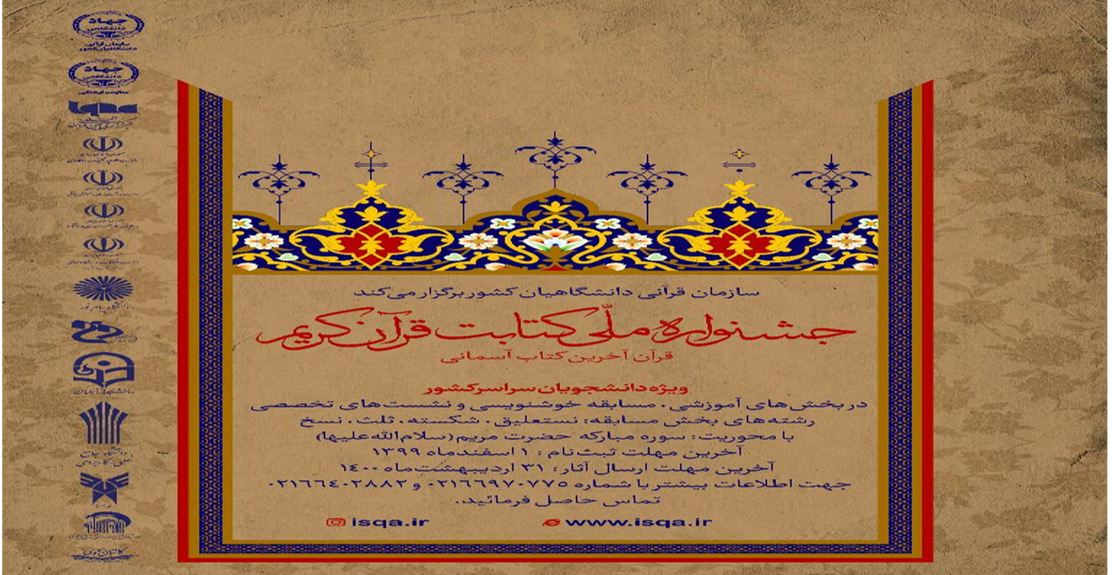 سازمان قرآنی دانشگاهیان کشور برگزار می‌کند
جشنواره ملّی کتابت قرآن کریم
قرآن آخرین کتاب آسمانی
ویژه دانشجویان سراسر کشور
در بخش‌های آموزشی، مسابقه خوشنویسی و نشست‌های تخصصی
رشته‌های بخش مسابقه: نستعلیق، شکسته، ثلث، نسخ
با محوریت: سوره مبارکه حضرت مریم (سلام‌الله‌علیها)
آخرین مهلت ثبت‌نام: ۱ اسفندماه ۱۳۹۹
آخرین مهلت ارسال آثار: ۳۱ اردیبهشت‌ماه ۱۴۰۰
جهت اطلاعات بیشتر با شماره ۰۲۱۶۶۹۷۰۷۷۵ و ۰۲۱۶۶۴۰۲۸۸۲
تماس حاصل فرمائید.
isqa.ir www.isqa.ir
جهاد
دانشگاهی
سازمان قرآنی
دانشگاهیان کشور
جهاد
دانشگاهی
معاونت فرهنگی